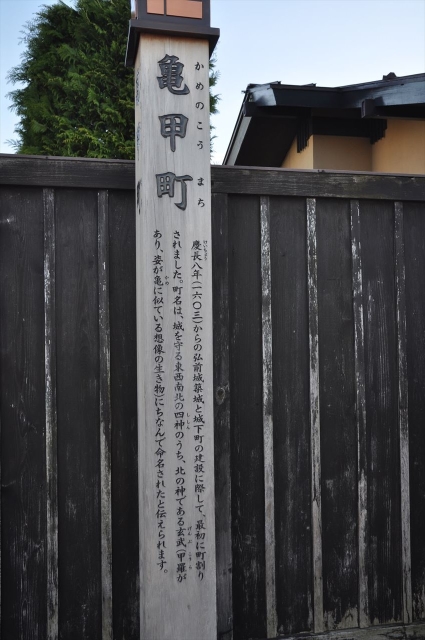 亀甲町
かめのこうまち
慶長八年(一六〇三)からの弘前城築城と城下町の建設に際して、最初に町割り
されました。町名は、城を守る東西南北の四神のうち、北の神である玄武(甲羅が
あり、姿が亀に似ている想像の生き物)にちなんで命名されたと伝えられます。